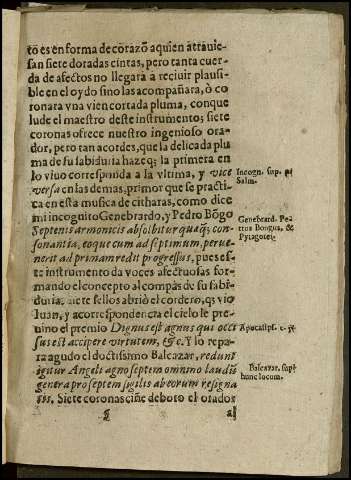 tō es en forma de corazō aquien atrauie-
san siete doradas cintas, pero tanta cuer-
da de afectos no llegarà a reciuir plausi-
ble en el oydo sino las acompañara, ò co
ronara vna vien cortada pluma, conque
lude el maestro deste instrumento; siete
coronas ofrece nuestro ingenioso ora-
dor, pero tan acordes, que la delicada plu
ma de su sabiduria hazeq; la primera en
lo viuo corresponda a la vltima, y vice
versa en las demas, primor que se practi-
ca en esta musica de citharas, como dice
mi incognito Genebrardo, y Pedro Bōgo
Septenis armonicis absolbitur quæq; con-
sonantia, eo que cum ad septimum, perue-
nerit ad primam redit progressus, pues es-
te instrumento da voces afectuosas for-
mando el concepto al compàs de su sabi-
duria. siete sellos abriò el cordero, qs vio
Iuan, y a correspondencia el cielo le pre-
uino el premio Dignus est agnus qui occi
sus est accipere virtutem, &c. Y lo repa-
ra agudo el doctissimo Balcazar, redunt
igitur Angeli agno septem omnino laudū
genera pro septem sigilis ab eorum resigna
tis. Siete coronas ciñe deboto el orador
Incogn. sup.
Salm.
Genebrard. Pe-
trus Bongus, &
Pytagore.
Apocalips.
Balcazar. sup.
hunc locum.
¶ al